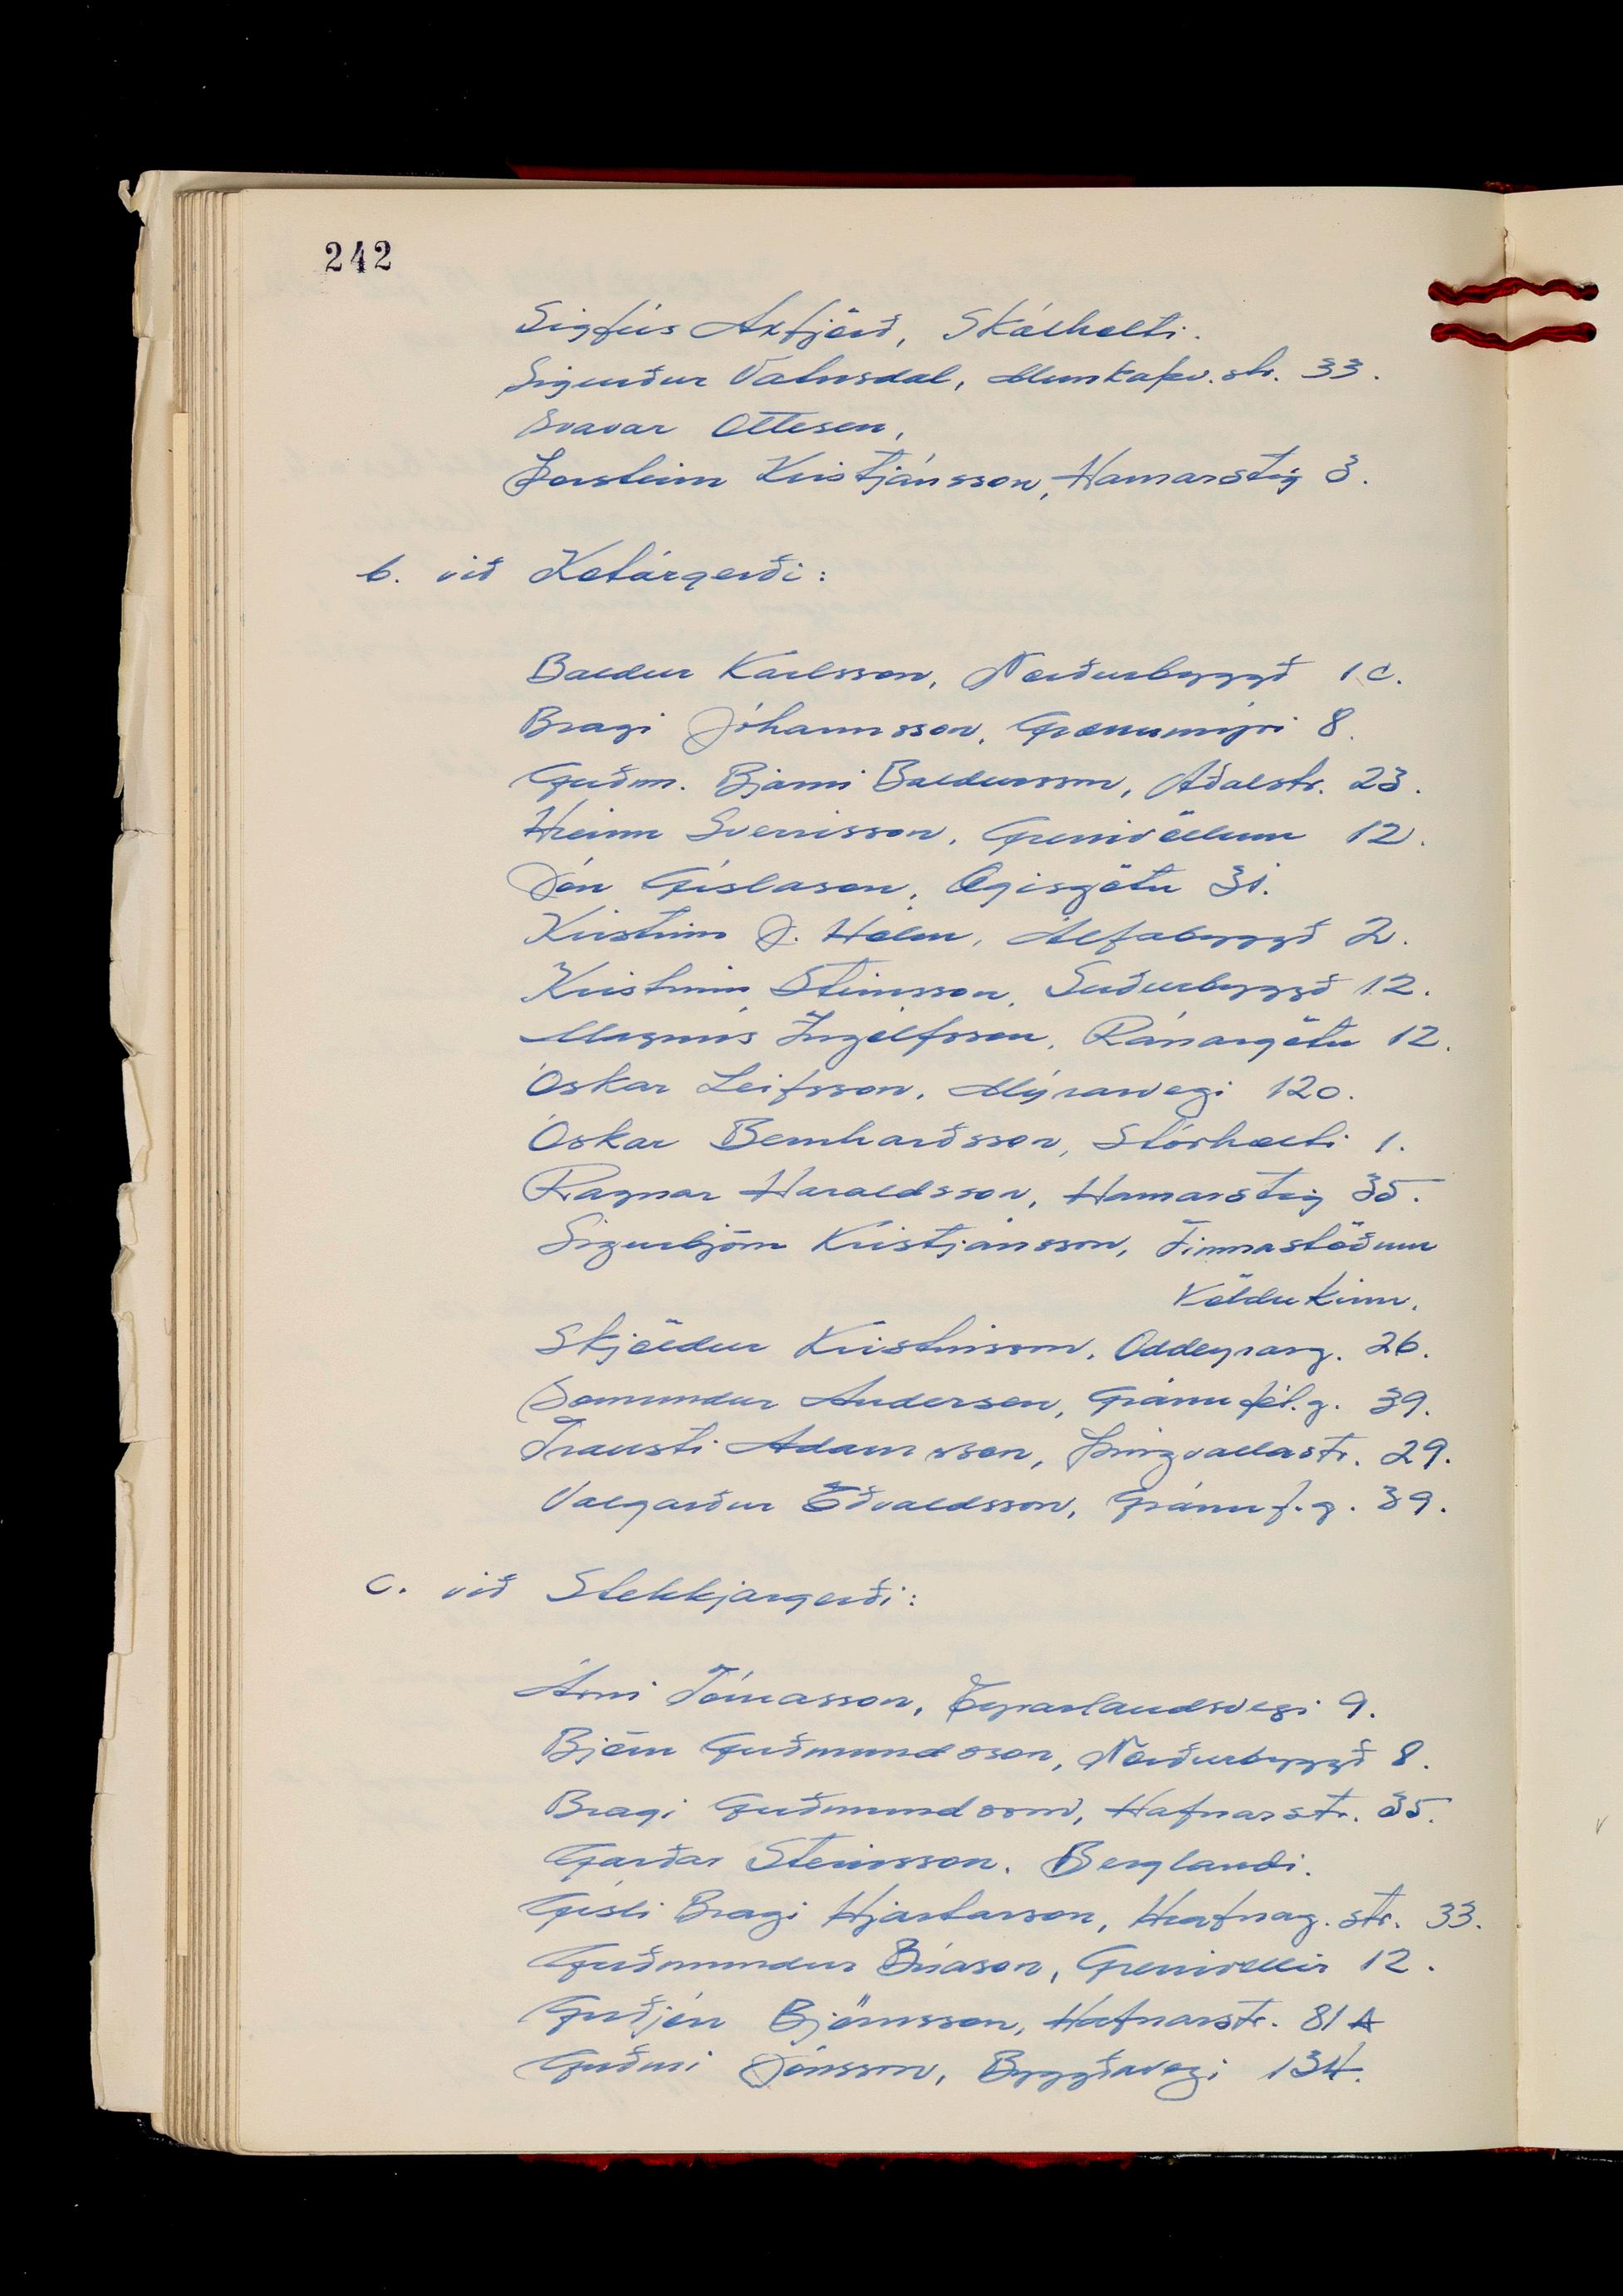 242
Sigfús Axfjörð, Skálholti.
Sigurður Vatnsdal, Munkaþv.str. 33.
Svavar Ottesen,
Þorsteinn Kristjánsson, Hamarstíg 3.
b. við Kotárgerði:
Baldur Karlsson, Norðurbyggð 1c.
Bragi Jóhannsson, Grænumýri 8.
Guðm. Bjarni Baldursson, Aðalstr. 23.
Hreinn Sverrisson, Grenivöllum 12.
Jón Gíslason, Ægisgötu 31.
Kristinn J. Hólm, Álfabyggð 2.
Kristinn Steinsson, Suðurbyggð 12.
Magnús Ingólfsson, Ránargötu 12.
Óskar Leifsson, Mýrarvegi 120.
Óskar Bernharðsson, Stórholti 1.
Ragnar Haraldsson, Hamarstíg 35.
Sigurbjörn Kristjánsson, Finnastöðum
Köldukinn.
Skjöldur Kristinsson, Oddeyrarg. 26.
Sæmundur Andersen, Gránufél.g. 39.
Trausti Adamsson, Þingvallastr. 29.
Valgarður Eðvaldsson, Gránuf.g. 39.
c. við Stekkjargerði:
Árni Tómasson, Eyrarlandsvegi 9.
Björn Guðmundsson, Norðurbyggð 8.
Bragi Guðmundsson, Hafnarstr. 35.
Garðar Steinsson, Berglandi.
Gísli Bragi Hjartarson, Hrafnag.str. 33.
Guðmundur Búason, Grenivellir 12.
Guðjón Björnsson, Hafnarstr. 81A
Guðni Jónsson, Byggðavegi 134.